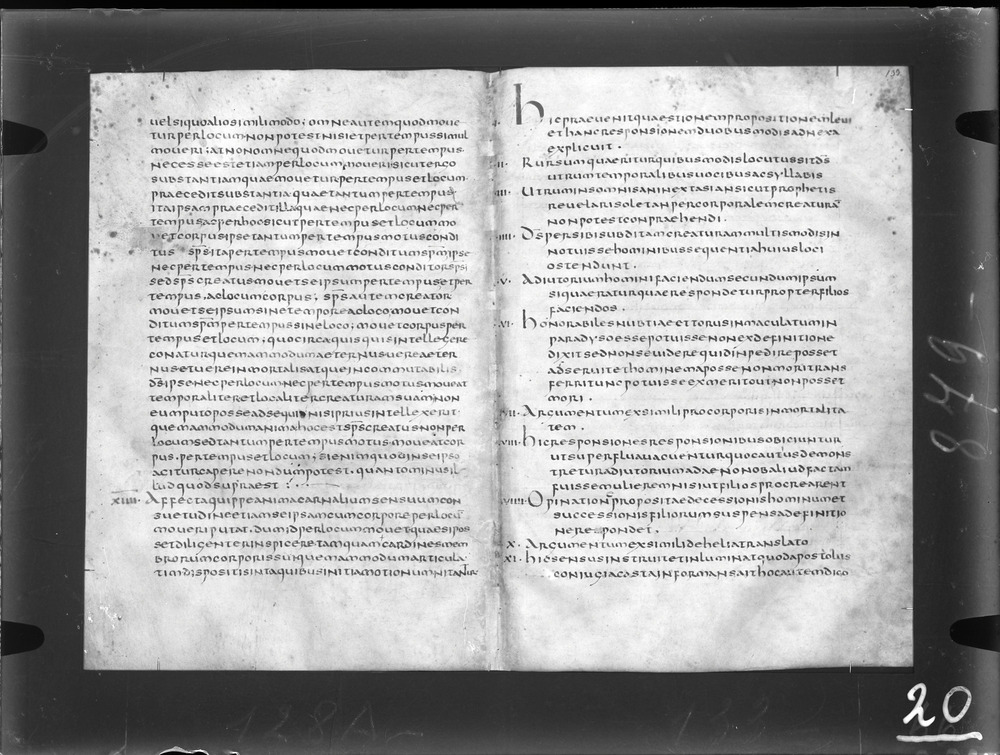 uelsiquoaliosimilimodo; omneautemquodmoue
turperlocumnonpotestnisietpertempussimul
moueri; atnonomnequodmoueturpertempus
necesseestetiamperlocummouerisicutergo
substantiamquaemoueturpertempusetlocum
praeceditsubstantiaquaetantumpertempus
itaipsampraeceditillaquaenecperlocumnecper
tempusacperhocsicutpertempusetlocummo
uetcorpusipsetantumpertempusmotuscondi
tus sps̄itapertempusmouetconditumspm̄ipse
necpertempusnecperlocummotusconditorsps̄
sedsps̄creatusmouetseipsumpertempusetper
tempus.aclocumcorpus; sps̄autemcreator
mouetseipsumsinetemporeacloco,mouetcon
ditumspm̄pertempussineloco; mouetcorpusper
tempusetlocum; quocircaquisquisintellegere
conaturquemammodumaeternusuereaeter
nusetuereinmortalisatqueincommutabilis
ds̄ipsenecperlocumnecpertempusmotusmoueat
temporaliteretlocalitercreaturamsuamnon
eumputoposseadsequinisipriusintellexerit
quemammodumanimahocestsps̄creatusnonper
locumsedtantumpertempusmotus.moueatcor
pus.pertempusetlocum; sienimquodinseipso
agiturcaperenondumpotest.quantominusil
ludquodsupraest
xiiii. Affectaquippeanimacarnaliumsensuumcon
suetudineetiamseipsamcumcorporeperlocū
moueriputat.dumidperlocummouetquaesipos
setdiligenterinspiceretamquamcardinesmem
brorumcorporissuiquemammodumarticula
timdispositisintaquibusinitiamotionumnitantur
132
Hicpraeuenitquaestionempropositionemleui
ethancresponsionemduobusmodisadnexa
explicuit.
ii. Rursumquaeriturquibusmodislocutussitds̄
utrumtemporalibusuocibusacsyllabis
iii. Utruminsomnisaninextasiansicutprophetis
reuelarisoletanpercorporalemcreaturā
nonpotestconpraehendi.
iiii. Ds̄persibisubditamcreaturammultismodisin
notuissehominibussequentiahuiusloci
ostendunt.
v. Adiutoriumhominifaciendumsecundumipsum
siquaeraturquaerespondeturpropterfilios
faciendos.
vi. Honorabilesnubtiaeettorusinmaculatumin
paradysoessepotuissenonexdefinitione
dixitsednonseuiderequidinpedireposset
adseruitethominemapossenonmoritrans
ferritunc potuisseexmeritoutnonposset
mori.
vii. Argumentumexsimiliprocorporisinmortalita
tem.
viii. Hicresponsionesresponsionibusobiciuntur
utsuperfluauacuenturquocautusdemons
treturadiutoriumadaenonobaliudfactam
fuissemulieremnisiutfiliosprocrearent
viiii. Opinationēpropositaedecessionishominumet
successionisfiliorumsuspensadefinitio
nerespondet.
x. Argumentumexsimilideheliatranslato
xi. Hicsensusinstruitetinluminatquodapostolus
coniugiacastainformansaithocautemdico
849
20